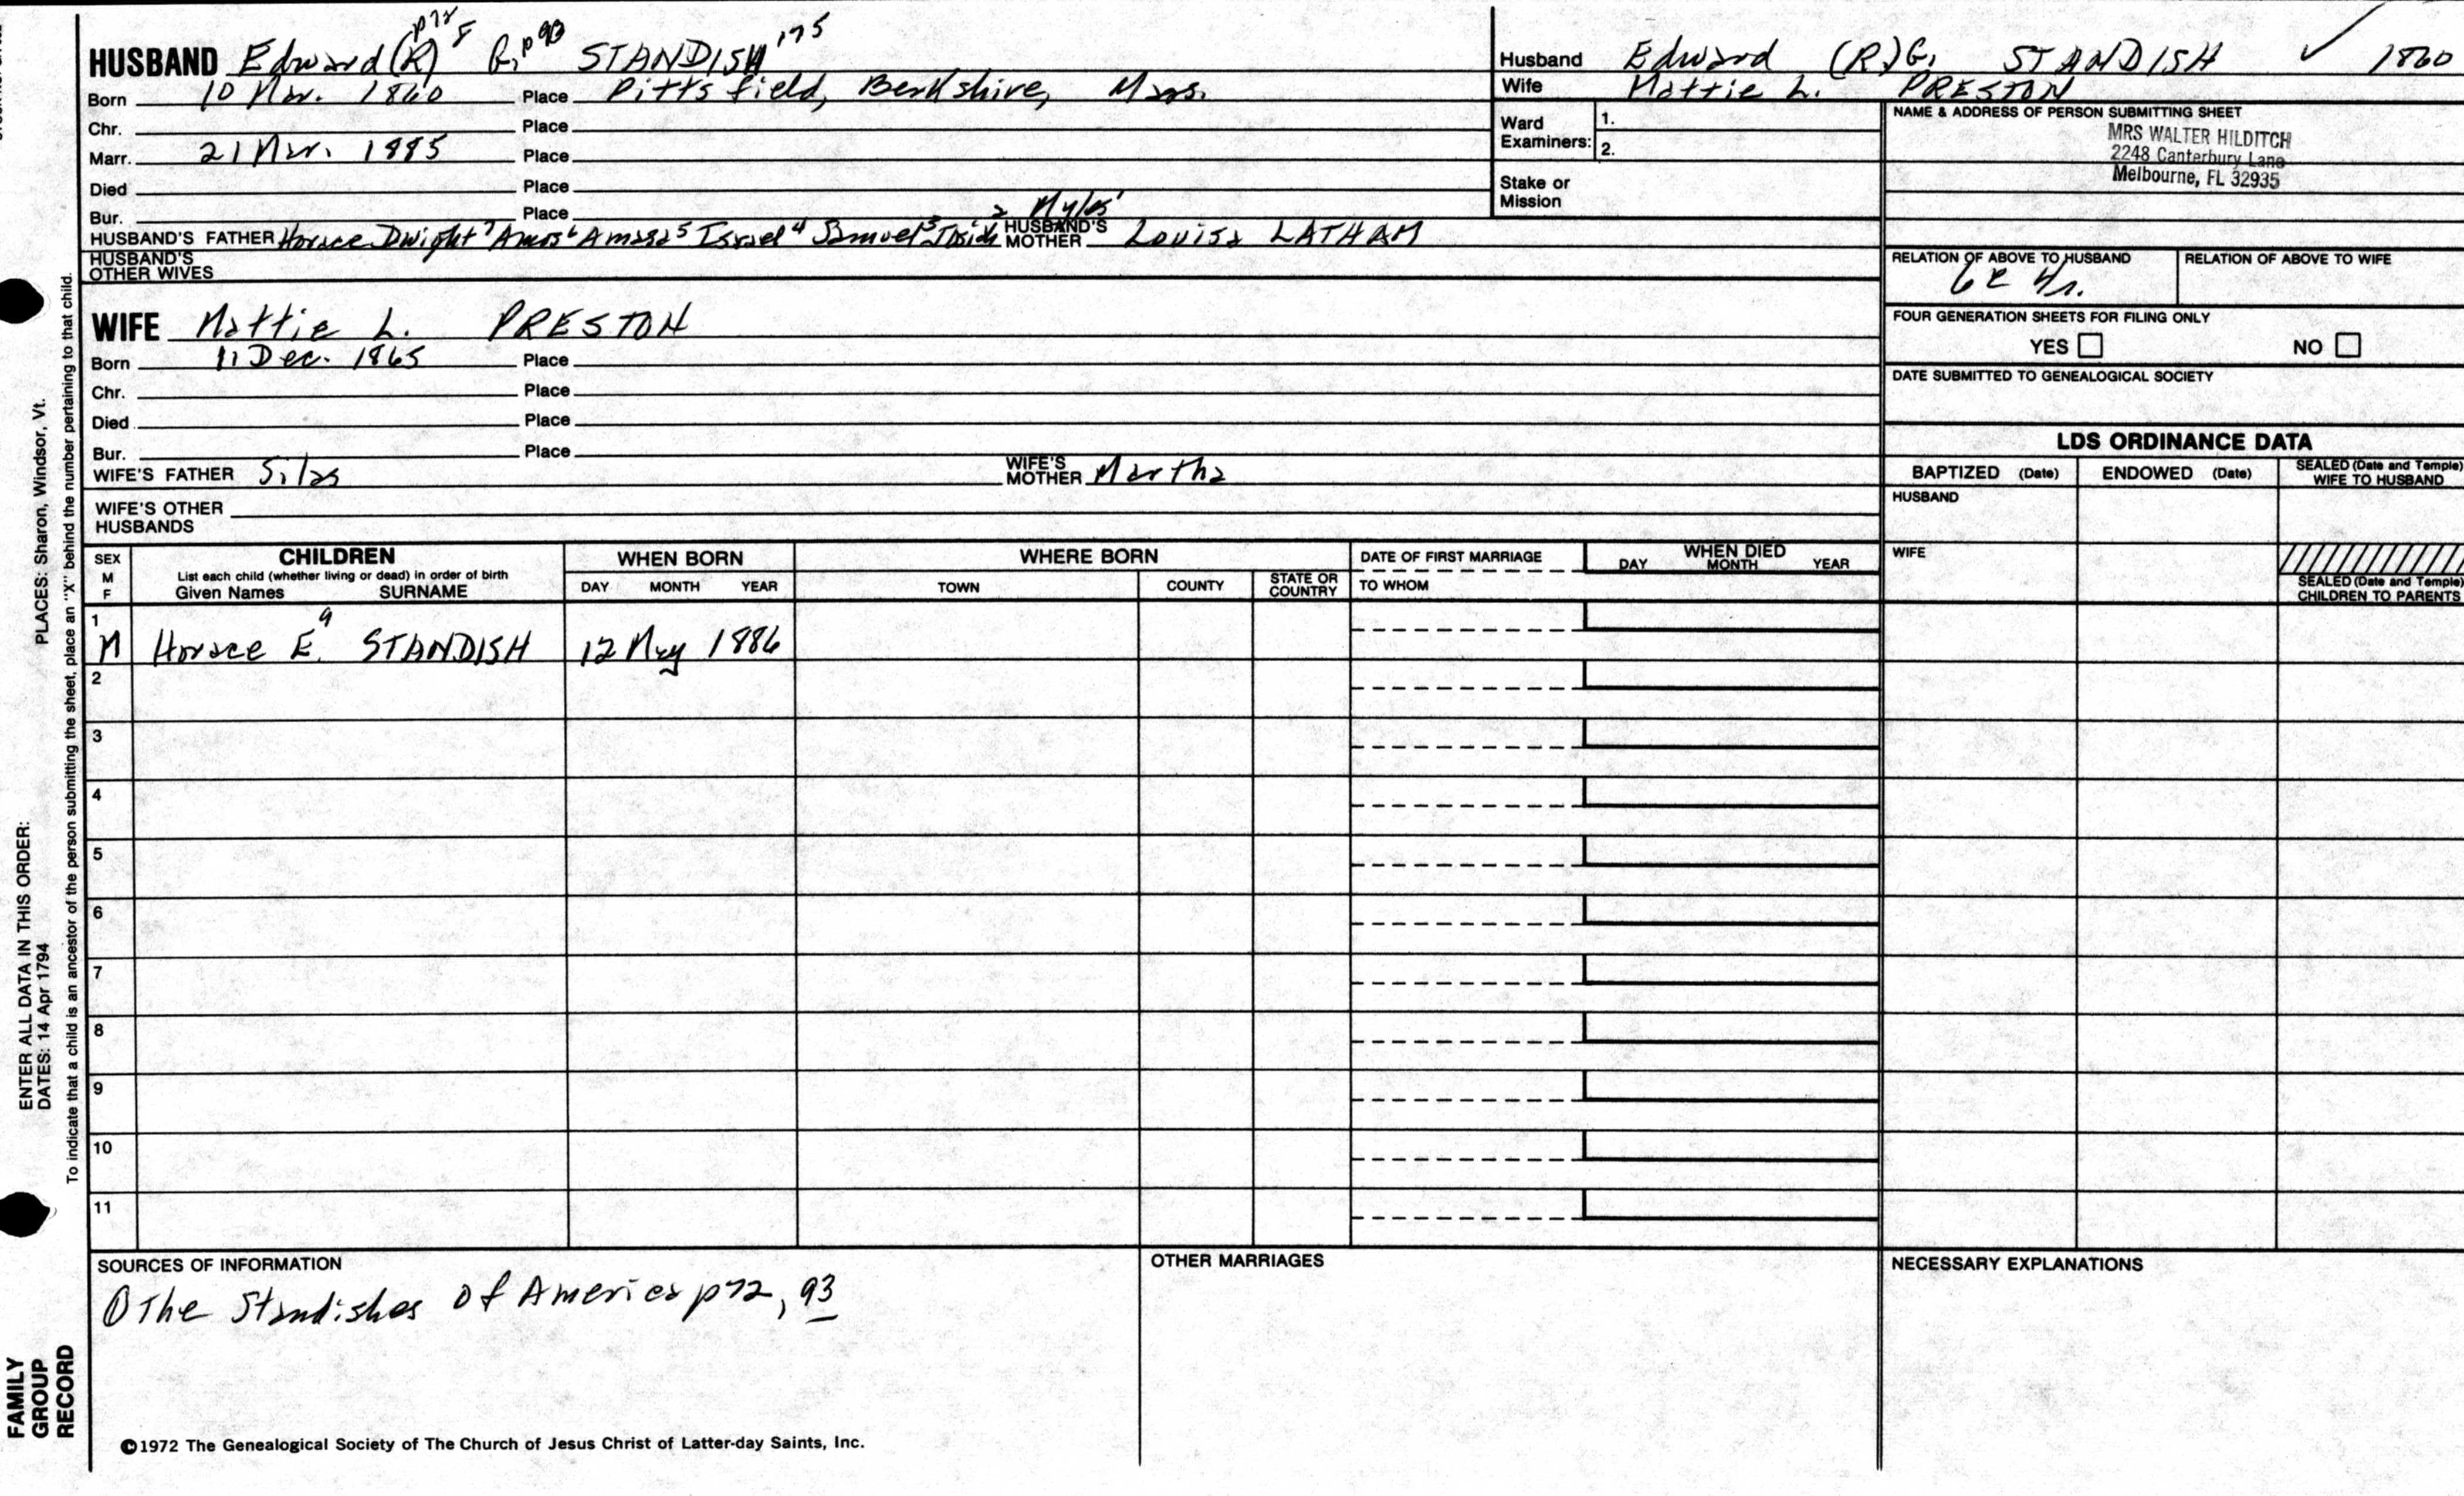 HUSBAND Edward (R) p72 8 G. p93 STANDISH 175
Born 10 Mar. 1860 Place Pittsfield, Berkshire, Mass.
Chr. Place
Marr. 21 Mar. 1885 Place
Died Place
Bur. Place
HUSBAND'S FATHER Horace Dwight 7 Amos 6 Amasa 5 Israel 4 Samuel 3 Josiah 2 Myles 1 HUSBAND'S MOTHER Louisa LATHAM
HUSBAND'S OTHER WIVES
WIFE Mattie L. PRESTON
Born 11 Dec. 1865 Place
Chr. Place
Died Place
Bur. Place
WIFE'S FATHER Silas WIFE'S MOTHER Martha
WIFE'S OTHER HUSBANDS
Husband Edward (R) G. STANDISH ✓ 1860
Wife Mattie L. PRESTON
Ward Examiners: 1.
2.
Stake or Mission
NAME & ADDRESS OF PERSON SUBMITTING SHEET
MRS WALTER HILDITCH
2248 Canterbury Lane
Melbourne, FL 32935
RELATION OF ABOVE TO HUSBAND RELATION OF ABOVE TO WIFE
6c
FOUR GENERATION SHEETS FOR FILING ONLY
YES NO
DATE SUBMITTED TO GENEALOGICAL SOCIETY
LDS ORDINANCE DATA
BAPTIZED (Date) ENDOWED (Date) SEALED (Date and Temple) WIFE TO HUSBAND
HUSBAND
WIFE
SEALED (Date and Temple) CHILDREN TO PARENTS
SEX M F CHILDREN WHEN BORN WHERE BORN DATE OF FIRST MARRIAGE WHEN DIED
List each child (whether living or dead) in order of birth
Given Names SURNAME DAY MONTH YEAR TOWN COUNTY STATE OR COUNTRY TO WHOM DAY MONTH YEAR
1 M Horace E. 9 STANDISH 12 May 1886
2
3
4
5
6
7
8
9
10
11
SOURCES OF INFORMATION
① The Standishes of America p72, 93
OTHER MARRIAGES
NECESSARY EXPLANATIONS
©1972 The Genealogical Society of The Church of Jesus Christ of Latter-day Saints, Inc.
ENTER ALL DATA IN THIS ORDER:
DATES: 14 Apr 1794 PLACES: Sharon, Windsor, Vt.
To indicate that a child is an ancestor of the person submitting the sheet, place an "X" behind the number pertaining to that child.
FAMILY
GROUP
RECORD